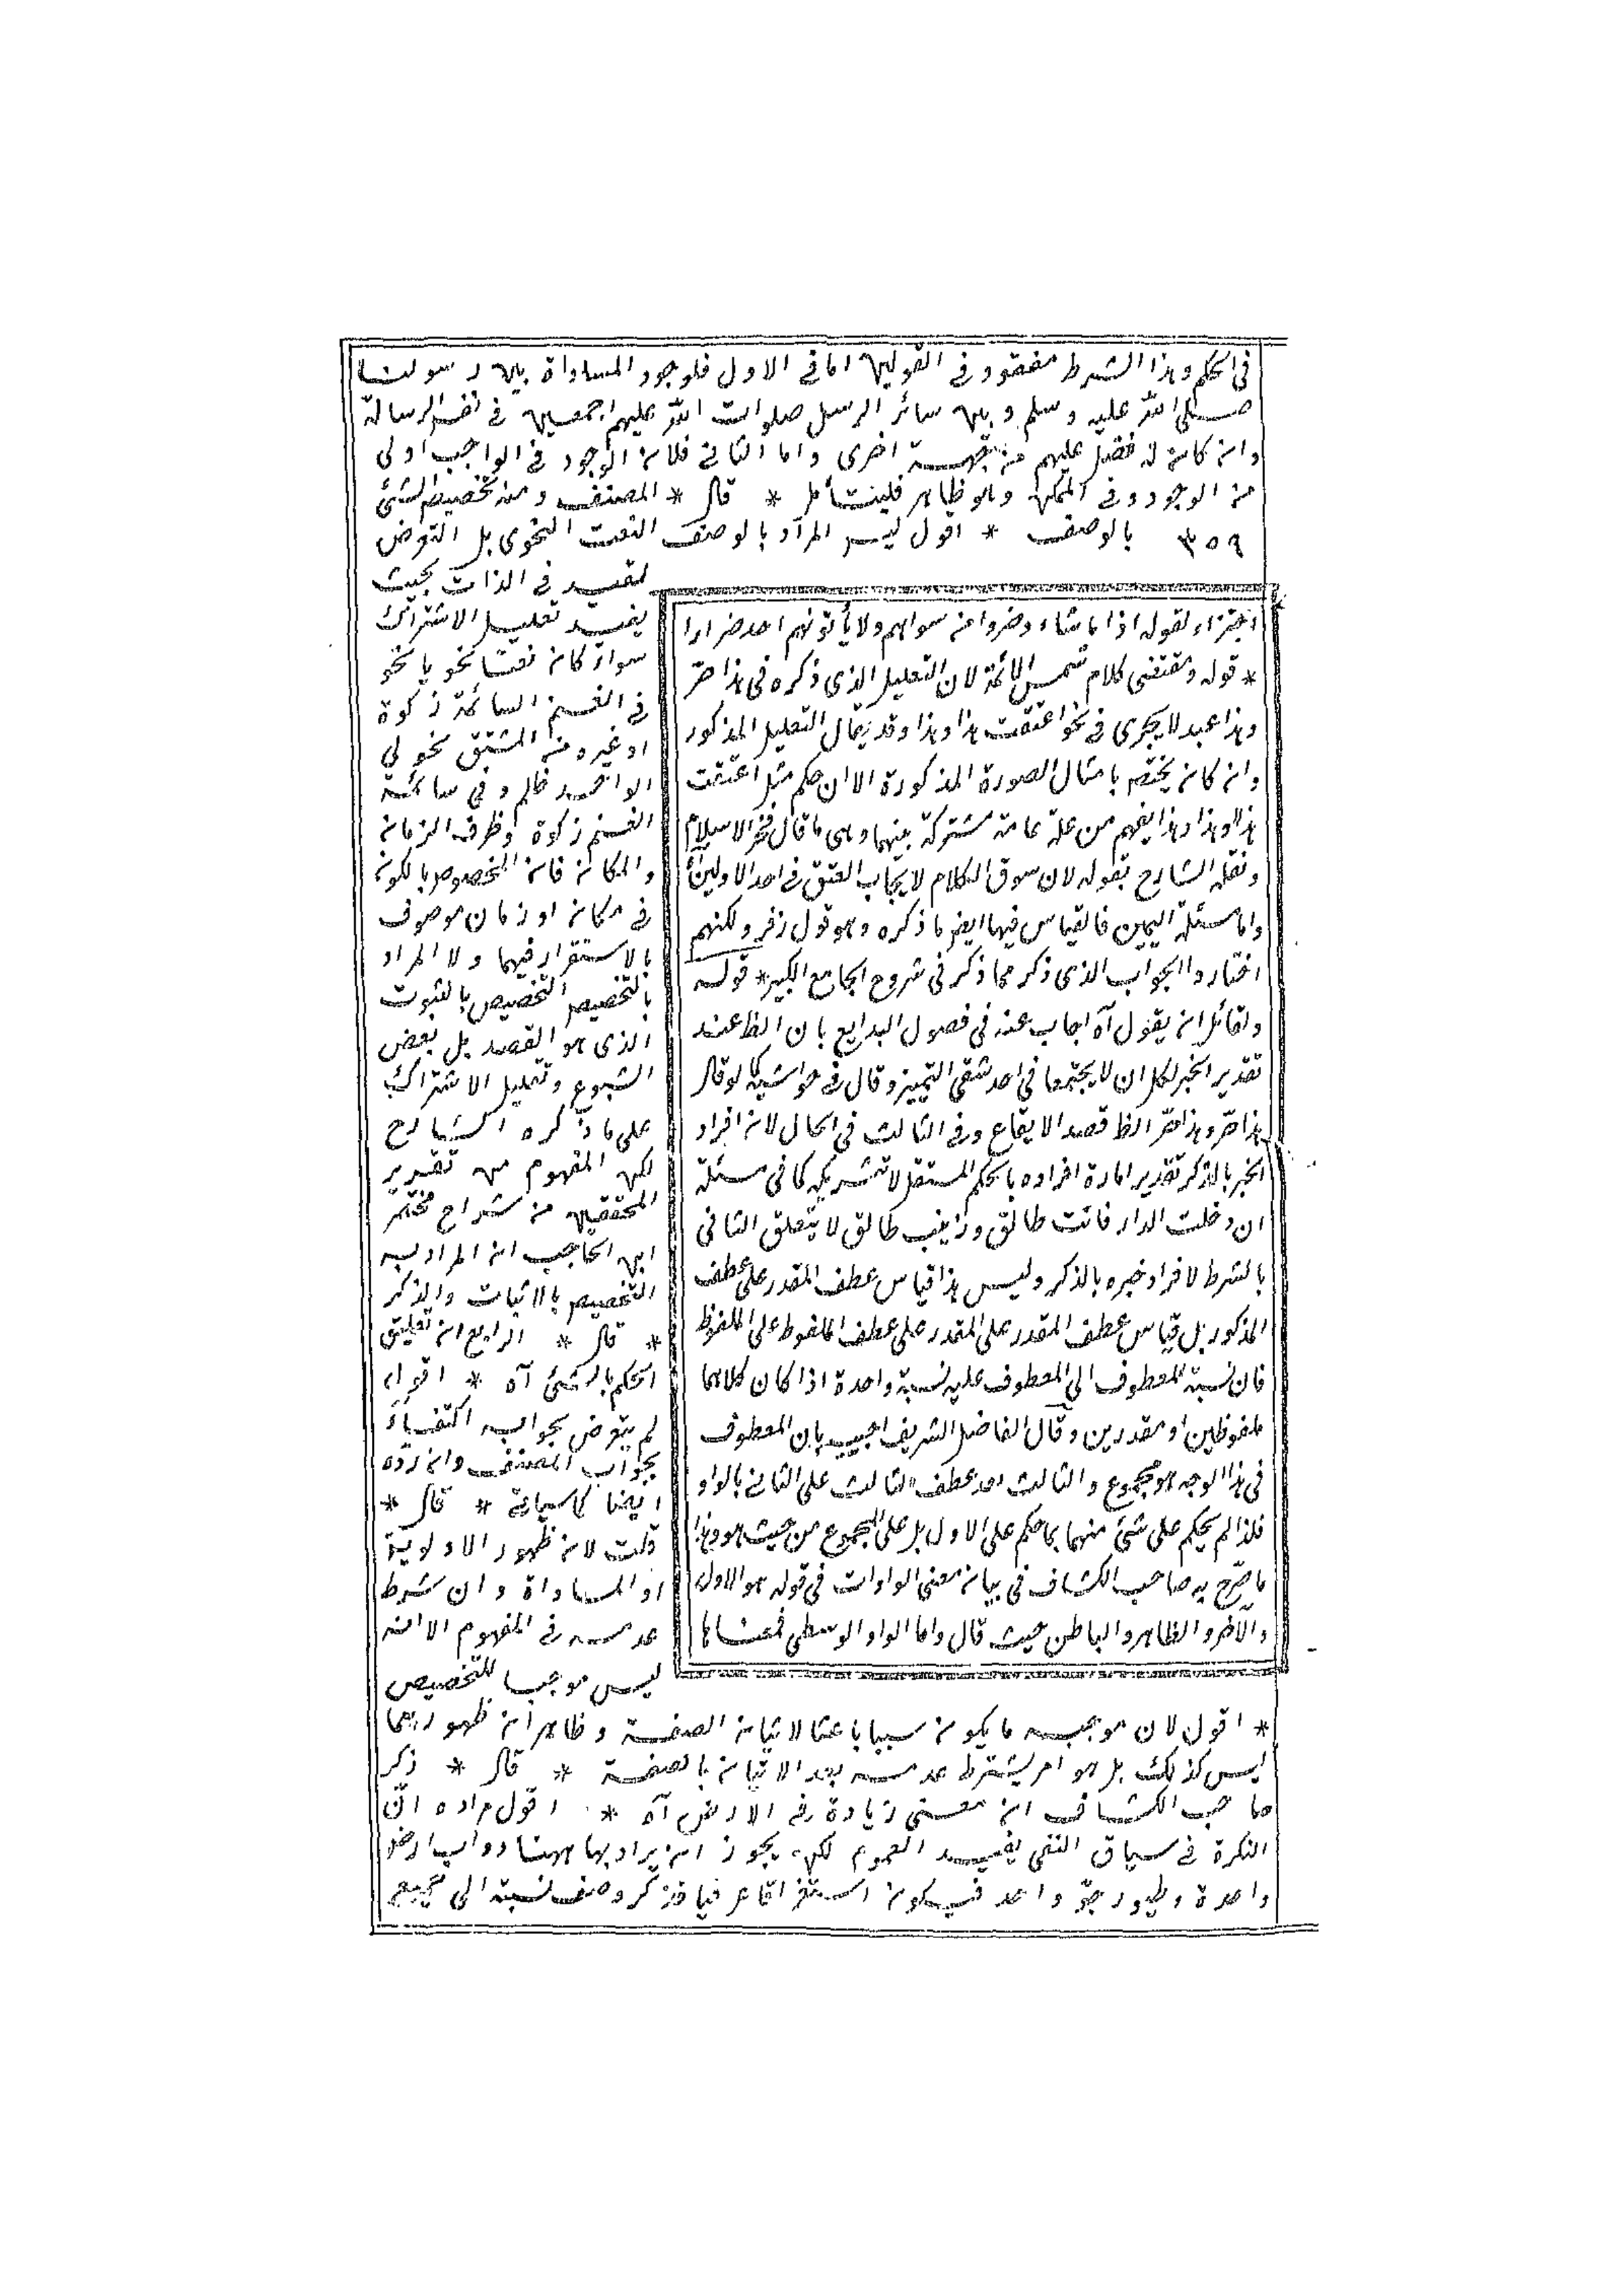 فى الحكم وهذا الشرط مفقود فى القولين اما فى الاول فلوجود المساواة بين رسولنا
صلى الله عليه وسلم وبين سائر الرسل صلوات الله عليهم اجمعين فى نفس الرسالة
وان كان له فضل عليهم من جهة اخرى واما الثانى فلان الوجود فى الواجب اولى
من الوجود فى الممكن وهو ظاهر فليتأمل * قال * المصنف ومنه تخصيص الشئ
٣٥٩ بالوصف * اقول ليس المراد بالوصف النعت النحوى بل التعرض
لقيد فى الذات بحيث
يفيد تقليل الاشتراك
سواء كان نعتا نحويا نحو
فى الغنم السائمة زكوة
او غيره من المشتق نحو لى
الواجد ظلم وفى سائمة
الغنم زكوة وظرف الزمان
والمكان فان المخصوص بالكون
فى مكان او زمان موصوف
بالاستقرار فيهما ولا المراد
بالتخصيص التخصيص بالثبوت
الذى هو القصد بل بعض
الشيوع وتقليل الاشتراك
على ما ذكره الشارح
لكن المفهوم من تقرير
المحققين من شراح مختصر
ابن الحاجب ان المراد به
التخصيص بالاثبات والذكر
* قال * الرابع ان تعليق
الحكم بالشئ آه * اقول
لم يتعرض بجوابه اكتفاء
بجواب المصنف وان رده
ايضا كما سيأتى * قال *
قلت لان ظهور الاولوية
او المساواة وان شرط
عدمه فى المفهوم الا انه
ليس موجبا للتخصيص
* اقول لان موجبه ما يكون سببا باعثا لاتيان الصفة وظاهر ان ظهور ربهما
ليس كذلك بل هو امر يشترط عدمه بعد الاتيان بالصفة * قال * ذكر
صاحب الكشاف ان معنى زيادة فى الارض آه * اقول مراده ان
النكرة فى سياق النفى يفيد العموم لكن يجوز ان يراد بها ههنا دواب ارض
واحدة وطيور جو واحد فيكون استغراقا عرفيا فذكر وصف نسبته الى جميع
اجتزاء لقوله اذا ما شاء وضروا من سواهم ولا يألونهم احد ضرارا
* قوله ومقتضى كلام شمس الائمة لان التعليل الذى ذكره فى هذا حر
وهذا عبد لا يجرى فى نحو اعتقت هذا وهذا وقد يقال التعليل المذكور
وان كان يختص بامثال الصورة المذكورة الا ان حكم مثل اعتقت
هذا او هذا وهذا يفهم من علة عامة مشتركة بينهما وهى ما قال فخر الاسلام
ونقله الشارح بقوله لان سوق الكلام لايجاب العتق فى احد الاولين
واما مسئلة اليمين فالقياس فيها ايضا ما ذكره وهو قول زفر ولكنهم
اختاروا الجواب الذى ذكر مما ذكر فى شروح الجامع الكبير * قوله
ولقائل ان يقول آه اجاب عنه فى فصول البدايع بان الظ عند
تقدير الخبر لكل ان لا يجتمعا فى احد شقى التمييز وقال فى حواشيه كما لو قال
هذا حر وهذا حر الظ قصد الايقاع وفى الثالث فى الحال لان افراد
الخبر بالذكر تقدير امارة افراده بالحكم المستقل لا تشريكه كما فى مسئلة
ان دخلت الدار فانت طالق وزينب طالق لا يتعلق الثانى
بالشرط لافراد خبره بالذكر وليس هذا قياس عطف المقدر على عطف
المذكور بل قياس عطف المقدر على المقدر على عطف الملفوظ على الملفوظ
فان نسبة المعطوف الى المعطوف عليه نسبة واحدة اذا كان كلاهما
ملفوظين او مقدرين وقال الفاضل الشريف اجيب بان المعطوف
فى هذا الوجه هو مجموع والثالث بعد عطف الثالث على الثانى بالواو
فلذا لم يحكم على شئ منهما بما حكم على الاول بل على المجموع من حيث هو وهذا
ما صرح به صاحب الكشاف فى بيان معنى الواوات فى قوله هو الاول
والآخر والظاهر والباطن حيث قال واما الواو الوسطى فمعناها